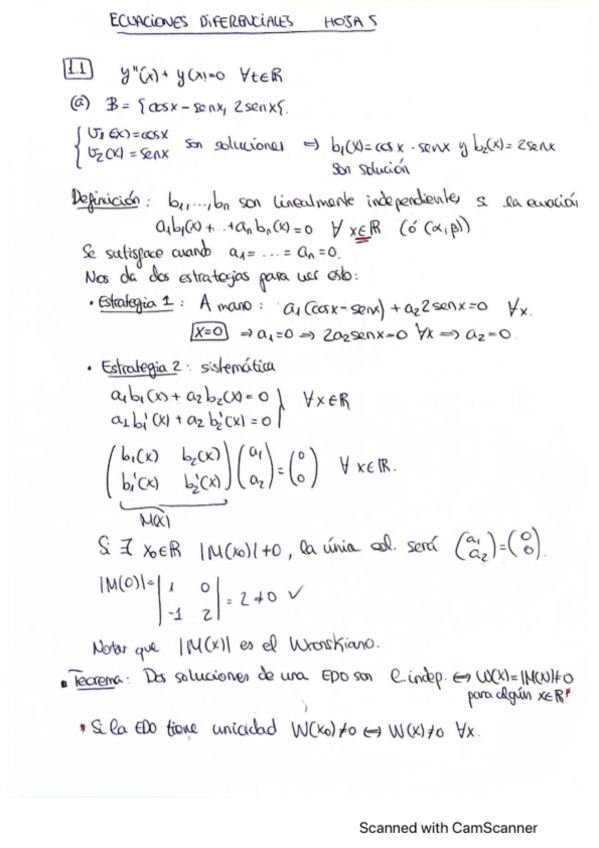 ECUACIONES DIFERENCIALES HOJA 5
1.1 y''(x) + y(x)=0 ∀t∈ℝ
(a) B = {cosx - senx, 2senx}.
{ U₁(x)=cosx
U₂(x)=senx son soluciones ⇒ b₁(x)=cosx - senx y b₂(x)=2senx
son solución
Definición: b₁,...,bn son linealmente independientes si la ecuación
a₁b₁(x) + ..+an bn(x)=0 ∀ x∈ℝ (ó (α,β))
Se satisface cuando a₁= ... = an=0.
Nos da dos estrategias para ver esto:
• Estrategia 1: A mano: a₁(cosx-senx) + a₂2senx=0 ∀x.
x=0 ⇒ a₁=0 ⇒ 2a₂senx=0 ∀x ⇒ a₂=0.
• Estrategia 2: sistemática
a₁b₁(x) + a₂b₂(x)=0 }
a₁b₁'(x) + a₂b₂'(x)=0 } ∀x∈ℝ
(b₁(x) b₂(x)) (a₁) = (0)
(b₁'(x) b₂'(x)) (a₂) (0) ∀ x∈ℝ.
M(x)
Si ∃ x₀∈ℝ |M(x₀)|≠0, la única sol. será (a₁ a₂)=(0 0).
|M(0)|= | 1 0 |
| -1 2 | = 2≠0 ✓
Notar que |M(x)| es el Wronskiano.
• Teorema: Dos soluciones de una EDO son l. indep. ⇔ W(x)=|M(x)|≠0
para algún x∈ℝ*
* Si la EDO tiene unicidad W(x₀)≠0 ⇔ W(x)≠0 ∀x.
Scanned with CamScanner